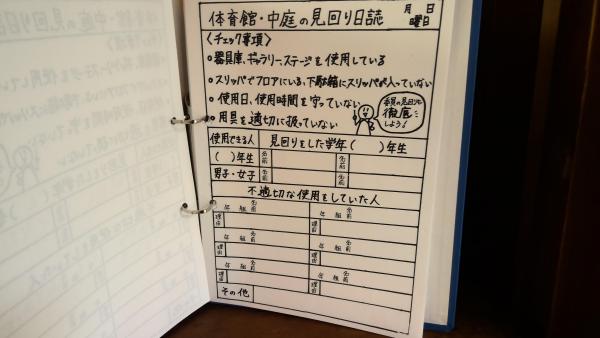 体育館・中庭の見回り日誌 月 日
曜日
〈チェック事項〉
○器具庫、ギャラリーステージを使用している
○スリッパでフロアにいる、下駄箱にスリッパが入っていない
○使用日、使用時間を守っていない
○用具を適切に扱っていない
委員の見回りを
徹底
しよう!
使用できる人 見回りをした学年( )年生
( )年生 名前 名前
男子・女子 名前 名前
不適切な使用をしていた人
年 組 名前 年 組 名前
理由 理由
年 組 名前 年 組 名前
理由 理由
年 組 名前 年 組 名前
理由 理由
その他